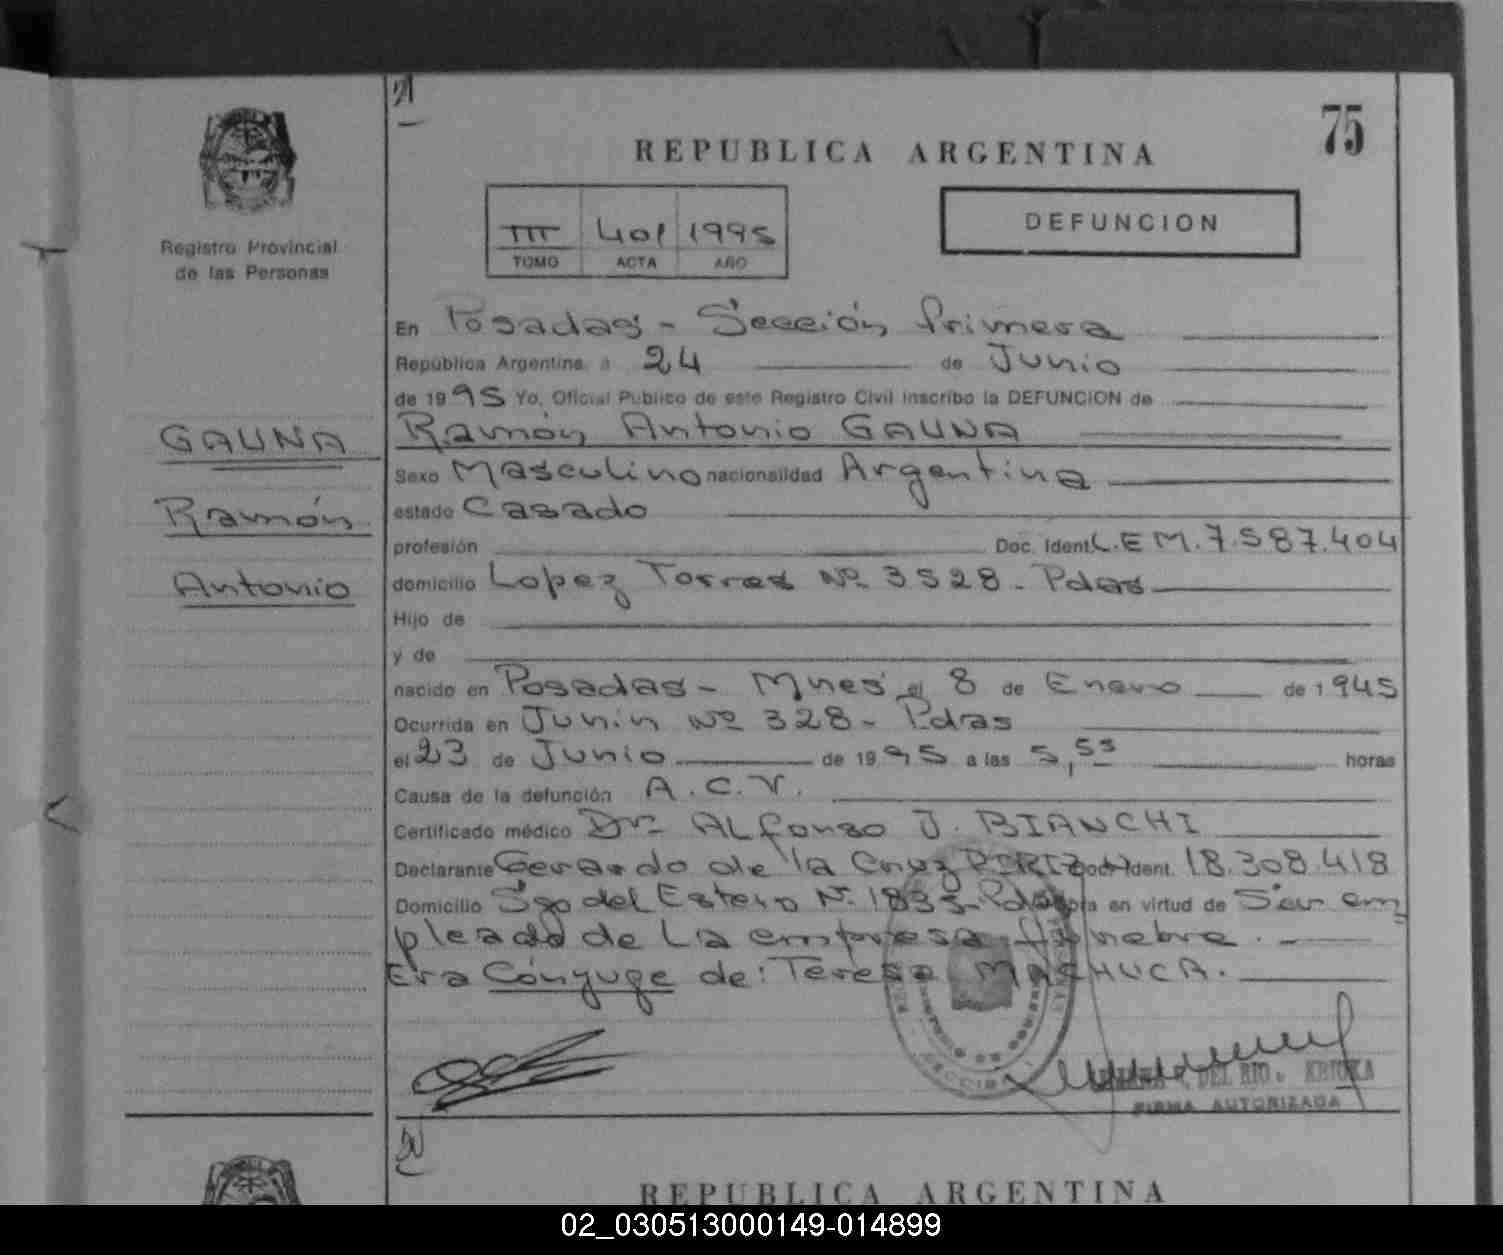 75
REPUBLICA ARGENTINA
Registro Provincial
de las Personas
III 401 1995
TOMO ACTA AÑO
DEFUNCION
En Posadas - Sección Primera
República Argentina a 24 de Junio
de 1995 Yo, Oficial Público de este Registro Civil inscribo la DEFUNCION de
GAUNA
Ramón
Antonio
Ramón Antonio GAUNA
Sexo Masculino nacionalidad Argentina
estado Casado
profesión Doc. Ident. L.E M. 7.587.404
domicilio Lopez Torres Nº 3528 - Pdas
Hijo de
y de
nacido en Posadas - Mnes el 8 de Enero de 1945
Ocurrida en Junín Nº 328 - Pdas
el 23 de Junio de 1995 a las 5,55 horas
Causa de la defunción A.C.V.
Certificado médico Dr. ALfonso J. BIANCHI
Declarante Gerardo de la Cruz Doc. Ident. 18.308.418
Domicilio Sgo del Estero Nº 1835 - Pdas obra en virtud de Ser em=
pleado de La empresa fúnebre.
Era Cónyuge de: Teresa MACHUCA.
DEL RIO
FIRMA AUTORIZADA
REPUBLICA ARGENTINA
02_030513000149-014899